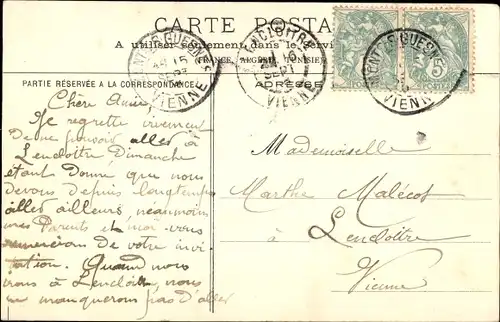 CARTE POSTA
A utiliser seulement dans le Servi
FRANCE, ALGÉRIE, TUNISIE
PARTIE RÉSERVÉE A LA CORRESPONDANCE
ADRESSE
MONTS-SUR-GUESNES
15
SEPT
VIENNE
LENCLOITRE
16
SEPT
VIENNE
MONTS-SUR-GUESNES
VIENNE
5c
Chère Amie,
Je regrette vivement
De ne pouvoir aller à
Lencloître Dimanche
étant Donné que nous
Devons Depuis longtemps
aller ailleurs, néanmoins
mes Parents et moi vous
remercions De votre invi
tation. Quand nous
irons à Lencloître, nous
ne manquerons pas D'aller
Mademoiselle
Marthe Malécot
à Lencloître
Vienne